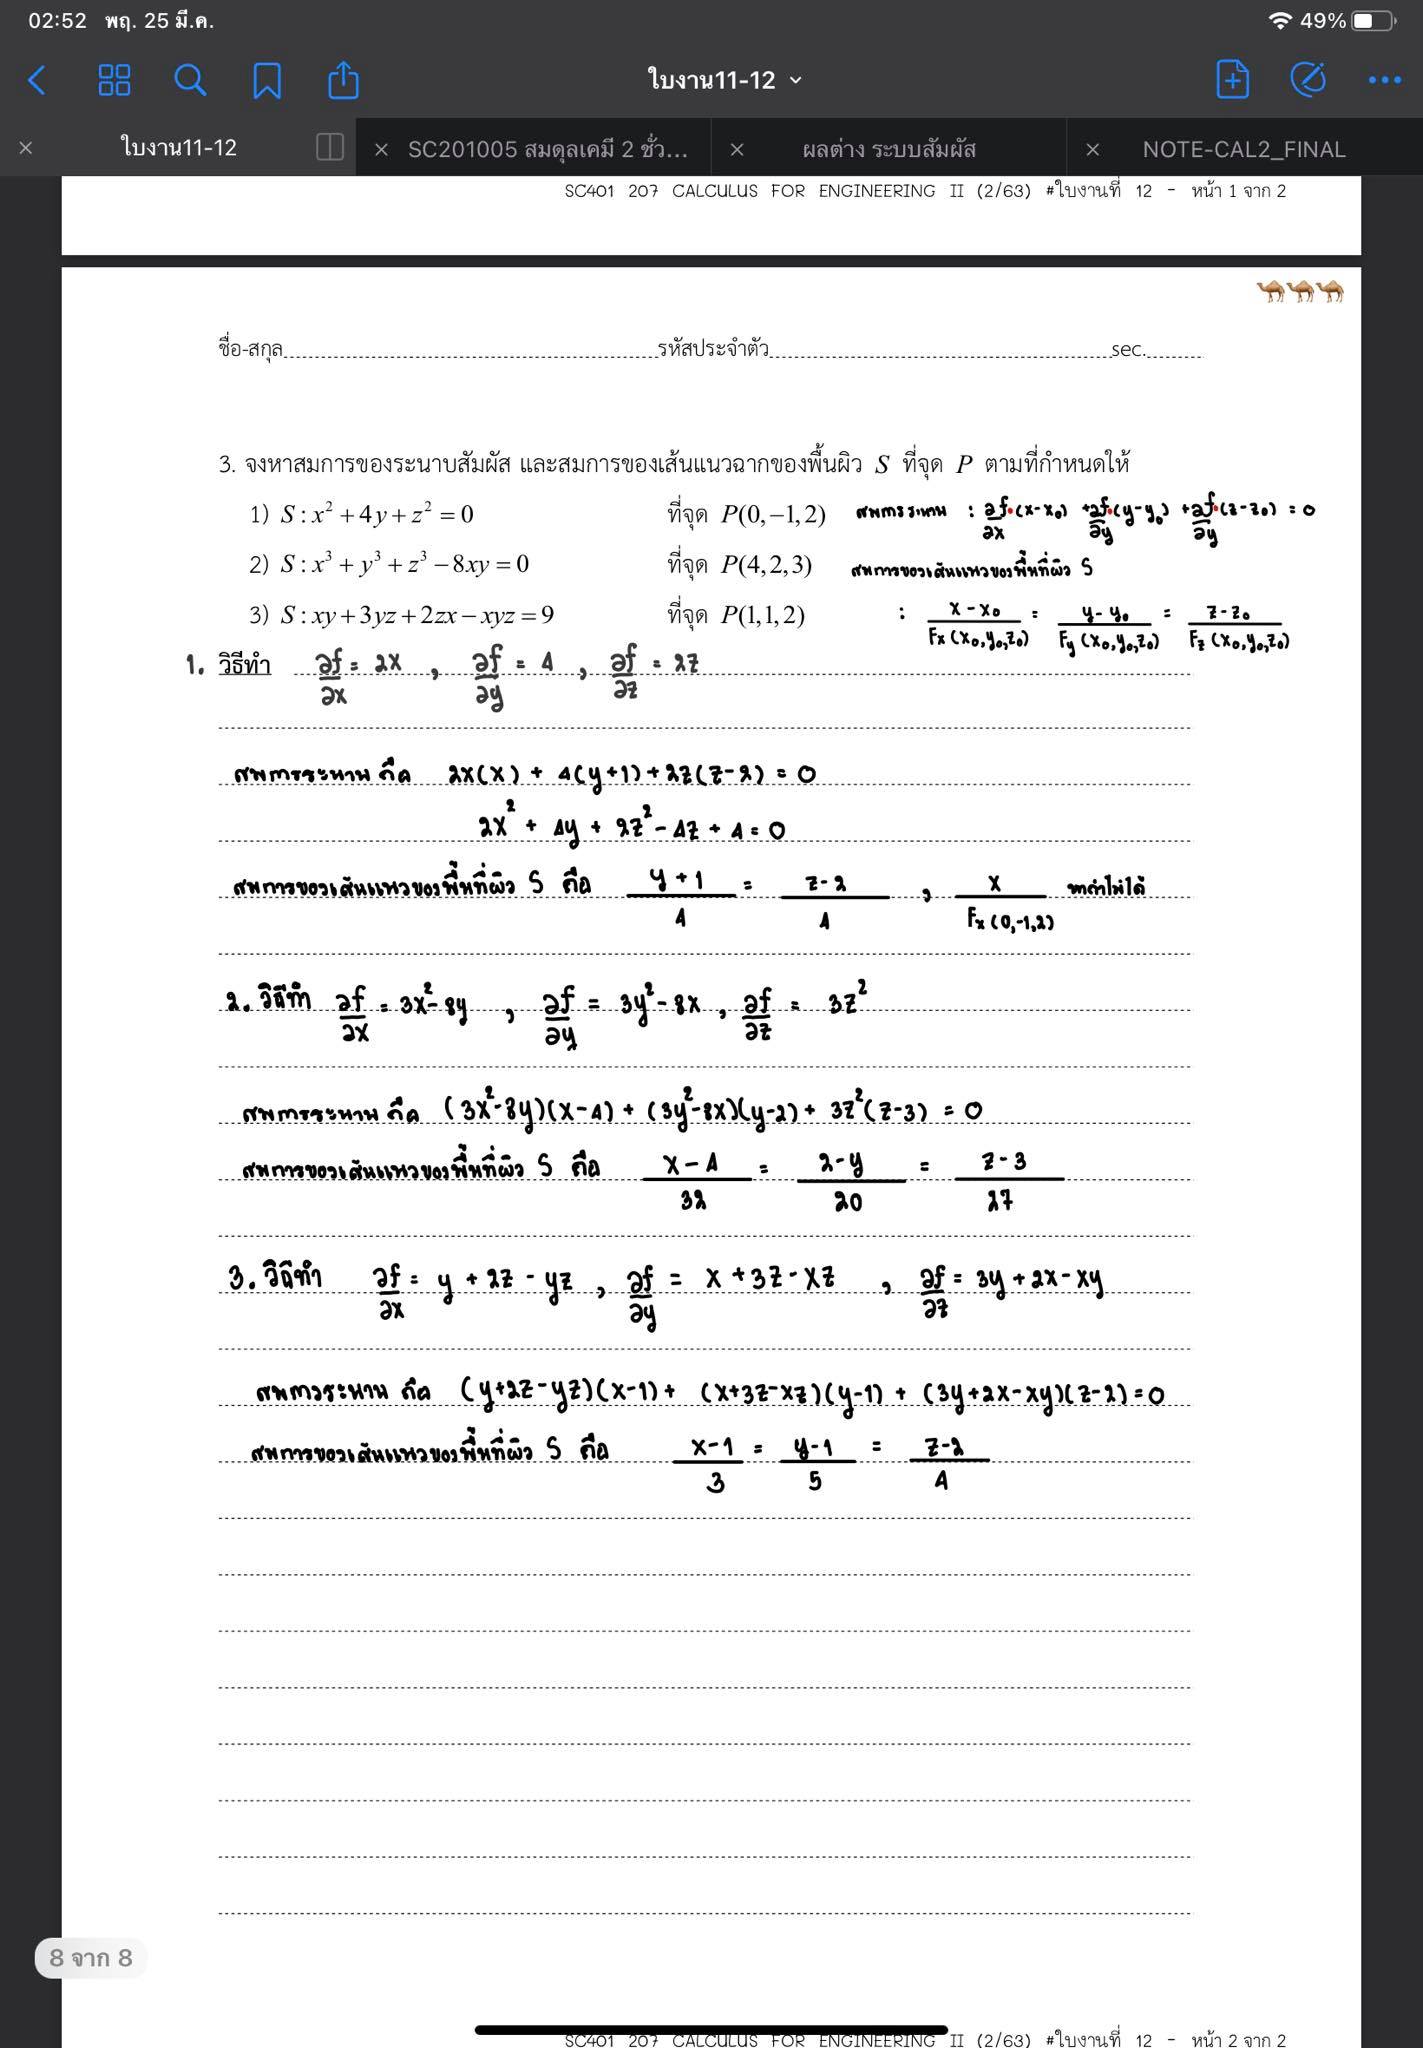 02:52 พฤ. 25 มี.ค.
49%
ใบงาน11-12
ใบงาน11-12
SC201005 สมดุลเคมี 2 ชั่ว...
ผลต่าง ระบบสัมผัส
NOTE-CAL2_FINAL
SC401 207 CALCULUS FOR ENGINEERING II (2/63) #ใบงานที่ 12 - หน้า 1 จาก 2
🐪🐪🐪
ชื่อ-สกุล รหัสประจำตัว sec.
3. จงหาสมการของระนาบสัมผัส และสมการของเส้นแนวฉากของพื้นผิว S ที่จุด P ตามที่กำหนดให้
1) S : x² + 4y + z² = 0 ที่จุด P(0, −1, 2) สมการระนาบ : ∂f/∂x·(x-x₀) + ∂f/∂y·(y-y₀) + ∂f/∂y·(z-z₀) = 0
2) S : x³ + y³ + z³ − 8xy = 0 ที่จุด P(4, 2, 3) สมการของเส้นแนวของพื้นที่ผิว S
3) S : xy + 3yz + 2zx − xyz = 9 ที่จุด P(1, 1, 2) : (x-x₀)/Fx(x₀,y₀,z₀) = (y-y₀)/Fy(x₀,y₀,z₀) = (z-z₀)/Fz(x₀,y₀,z₀)
1. วิธีทำ ∂f/∂x = 2x , ∂f/∂y = 4 , ∂f/∂z = 2z
สมการระนาบ คือ 2x(x) + 4(y+1) + 2z(z-2) = 0
2x² + 4y + 2z² - 4z + 4 = 0
สมการของเส้นแนวของพื้นที่ผิว S คือ (y+1)/4 = (z-2)/4 , x/Fx(0,-1,2) หาค่าไม่ได้
2. วิธีทำ ∂f/∂x = 3x²-8y , ∂f/∂y = 3y²-8x , ∂f/∂z = 3z²
สมการระนาบ คือ (3x²-8y)(x-4) + (3y²-8x)(y-2) + 3z²(z-3) = 0
สมการของเส้นแนวของพื้นที่ผิว S คือ (x-4)/32 = (2-y)/20 = (z-3)/27
3. วิธีทำ ∂f/∂x = y + 2z - yz , ∂f/∂y = x + 3z - xz , ∂f/∂z = 3y + 2x - xy
สมการระนาบ คือ (y+2z-yz)(x-1) + (x+3z-xz)(y-1) + (3y+2x-xy)(z-2) = 0
สมการของเส้นแนวของพื้นที่ผิว S คือ (x-1)/3 = (y-1)/5 = (z-2)/4
8 จาก 8
SC401 207 CALCULUS FOR ENGINEERING II (2/63) #ใบงานที่ 12 - หน้า 2 จาก 2